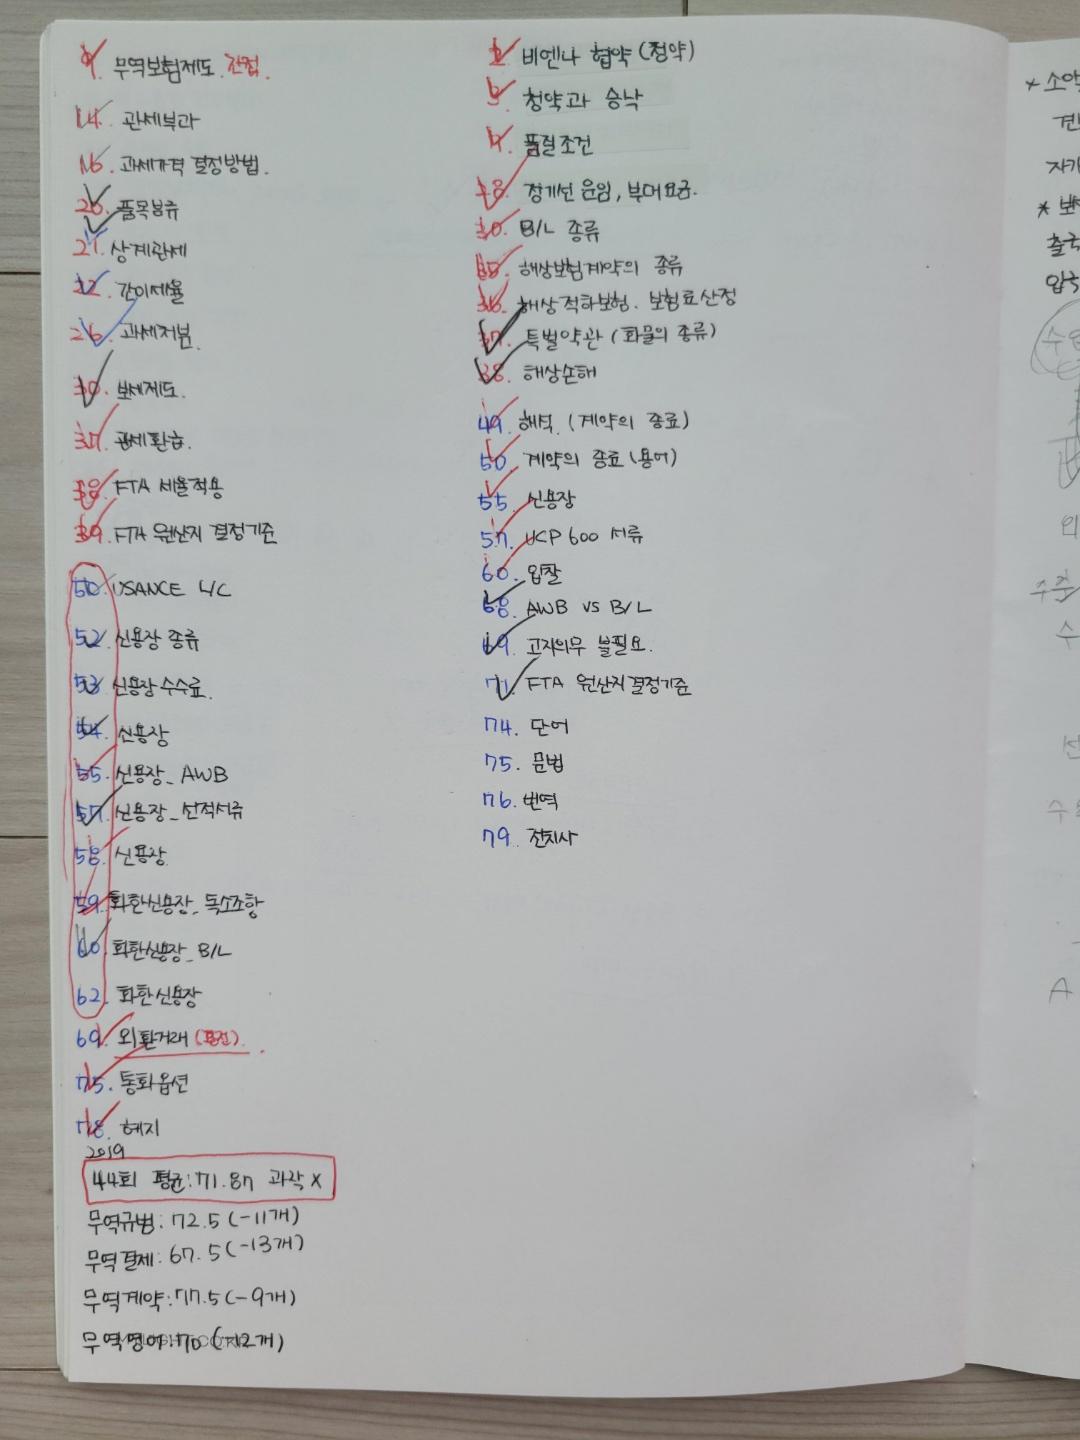 무역보험제도 간접.
14. 관세부과
16. 과세가격 결정방법.
20. 품목분류
21. 상계관세
22. 간이세율
26. 과세처분.
30. 보세제도.
37. 관세환급.
38. FTA 세율적용
39. FTA 원산지 결정기준
50. USANCE L/C
52. 신용장 종류
53. 신용장 수수료.
54. 신용장
55. 신용장_AWB
57. 신용장_선적서류
58. 신용장.
59. 화환신용장_독소조항
60. 화환신용장_B/L
62. 화환신용장
69. 외환거래
75. 통화옵션
78. 헤지
2019
44회 평균:71.87 과락X
무역규범: 72.5(-11개)
무역결제: 67.5(-13개)
무역계약:77.5(-9개)
무역영어:70(-12개)
2. 비엔나 협약(청약)
청약과 승낙
품질조건
정기선 운임, 부대요금.
30. B/L 종류
35. 해상보험계약의 종류
36. 해상적하보험. 보험료산정
37. 특별약관(화물의 종류)
38. 해상손해
49. 해석. (계약의 종료)
50. 계약의 종료(용어)
55. 신용장
57. UCP 600 서류
60. 입찰
68. AWB vs B/L
69. 고지의무 불필요.
71. FTA 원산지결정기준
74. 단어
75. 문법
76. 번역
79. 전치사
* 소액
자가
수입
A